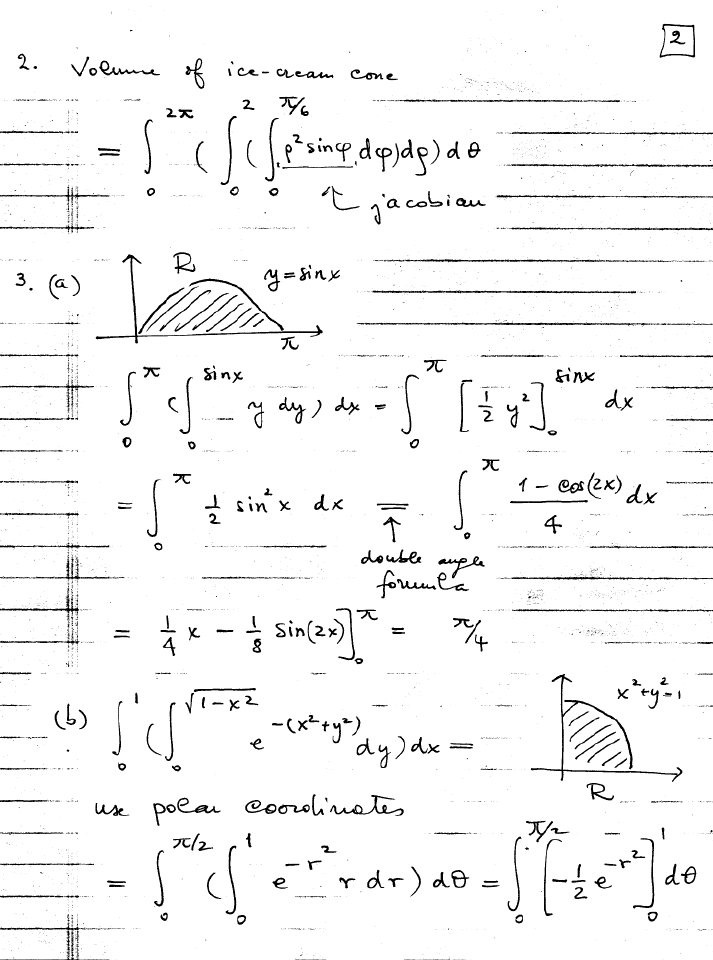 2
2. Volume of ice-cream cone
= ∫₀^{2π} ( ∫₀^{2} ( ∫₀^{π/6} ρ² sinφ dφ) dρ) dθ
↑ jacobian
3. (a) R y = sin x
π
∫₀^{π} ( ∫₀^{sin x} y dy ) dx = ∫₀^{π} [ 1/2 y² ]₀^{sin x} dx
= ∫₀^{π} 1/2 sin² x dx = ∫₀^{π} (1 - cos(2x))/4 dx
↑
double angle
formula
= 1/4 x - 1/8 sin(2x) ]₀^{π} = π/4
x² + y² = 1
(b) ∫₀^{1} ( ∫₀^{√(1-x²)} e^{-(x²+y²)} dy ) dx =
R
use polar coordinates
= ∫₀^{π/2} ( ∫₀^{1} e^{-r²} r dr ) dθ = ∫₀^{π/2} [ -1/2 e^{-r²} ]₀^{1} dθ